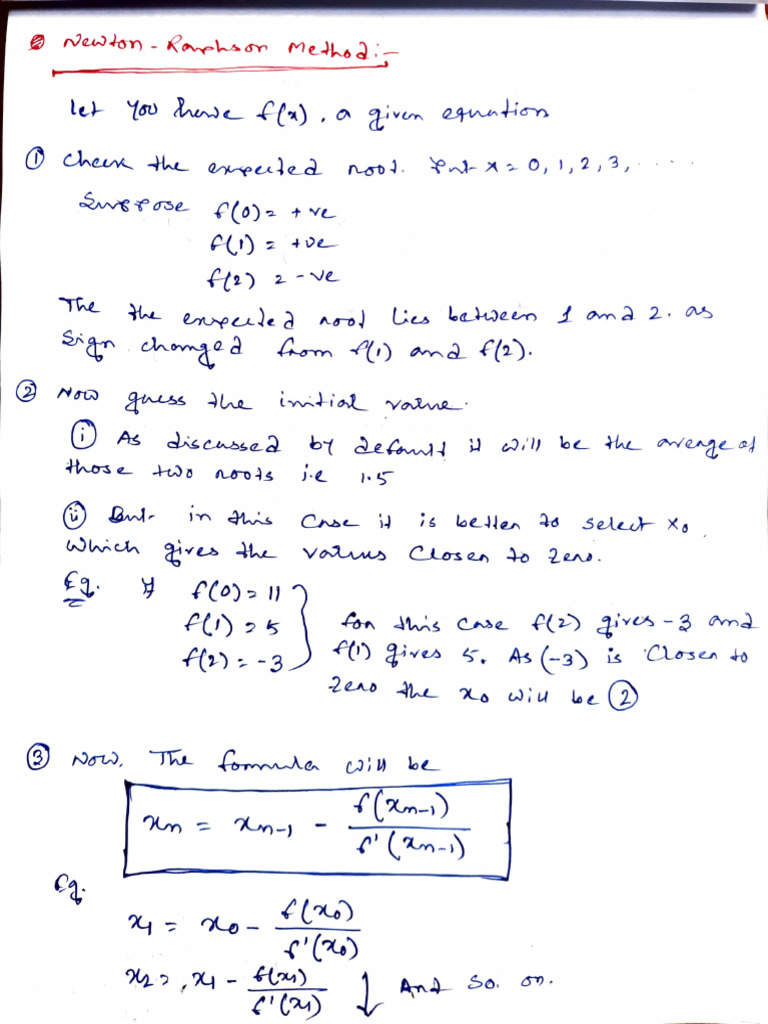 Newton-Raphson Method:-
let you have f(x), a given equation
① Check the expected root. Put x = 0, 1, 2, 3, .....
Suppose f(0) = +ve
f(1) = +ve
f(2) = -ve
The the expected root lies between 1 and 2. as
sign changed from f(1) and f(2).
② Now guess the initial value.
(i) As discussed by default it will be the average of
those two roots i.e 1.5
(ii) But in this case it is better to select x₀.
which gives the values closer to zero.
Eg. If f(0) = 11
f(1) = 5
f(2) = -3
for this case f(2) gives -3 and
f(1) gives 5. As (-3) is closer to
zero the x₀ will be ②
③ Now, The formula will be
xₙ = xₙ₋₁ - f(xₙ₋₁) / f'(xₙ₋₁)
Eg.
x₁ = x₀ - f(x₀) / f'(x₀)
x₂ = x₁ - f(x₁) / f'(x₁) ↓ And so. on.